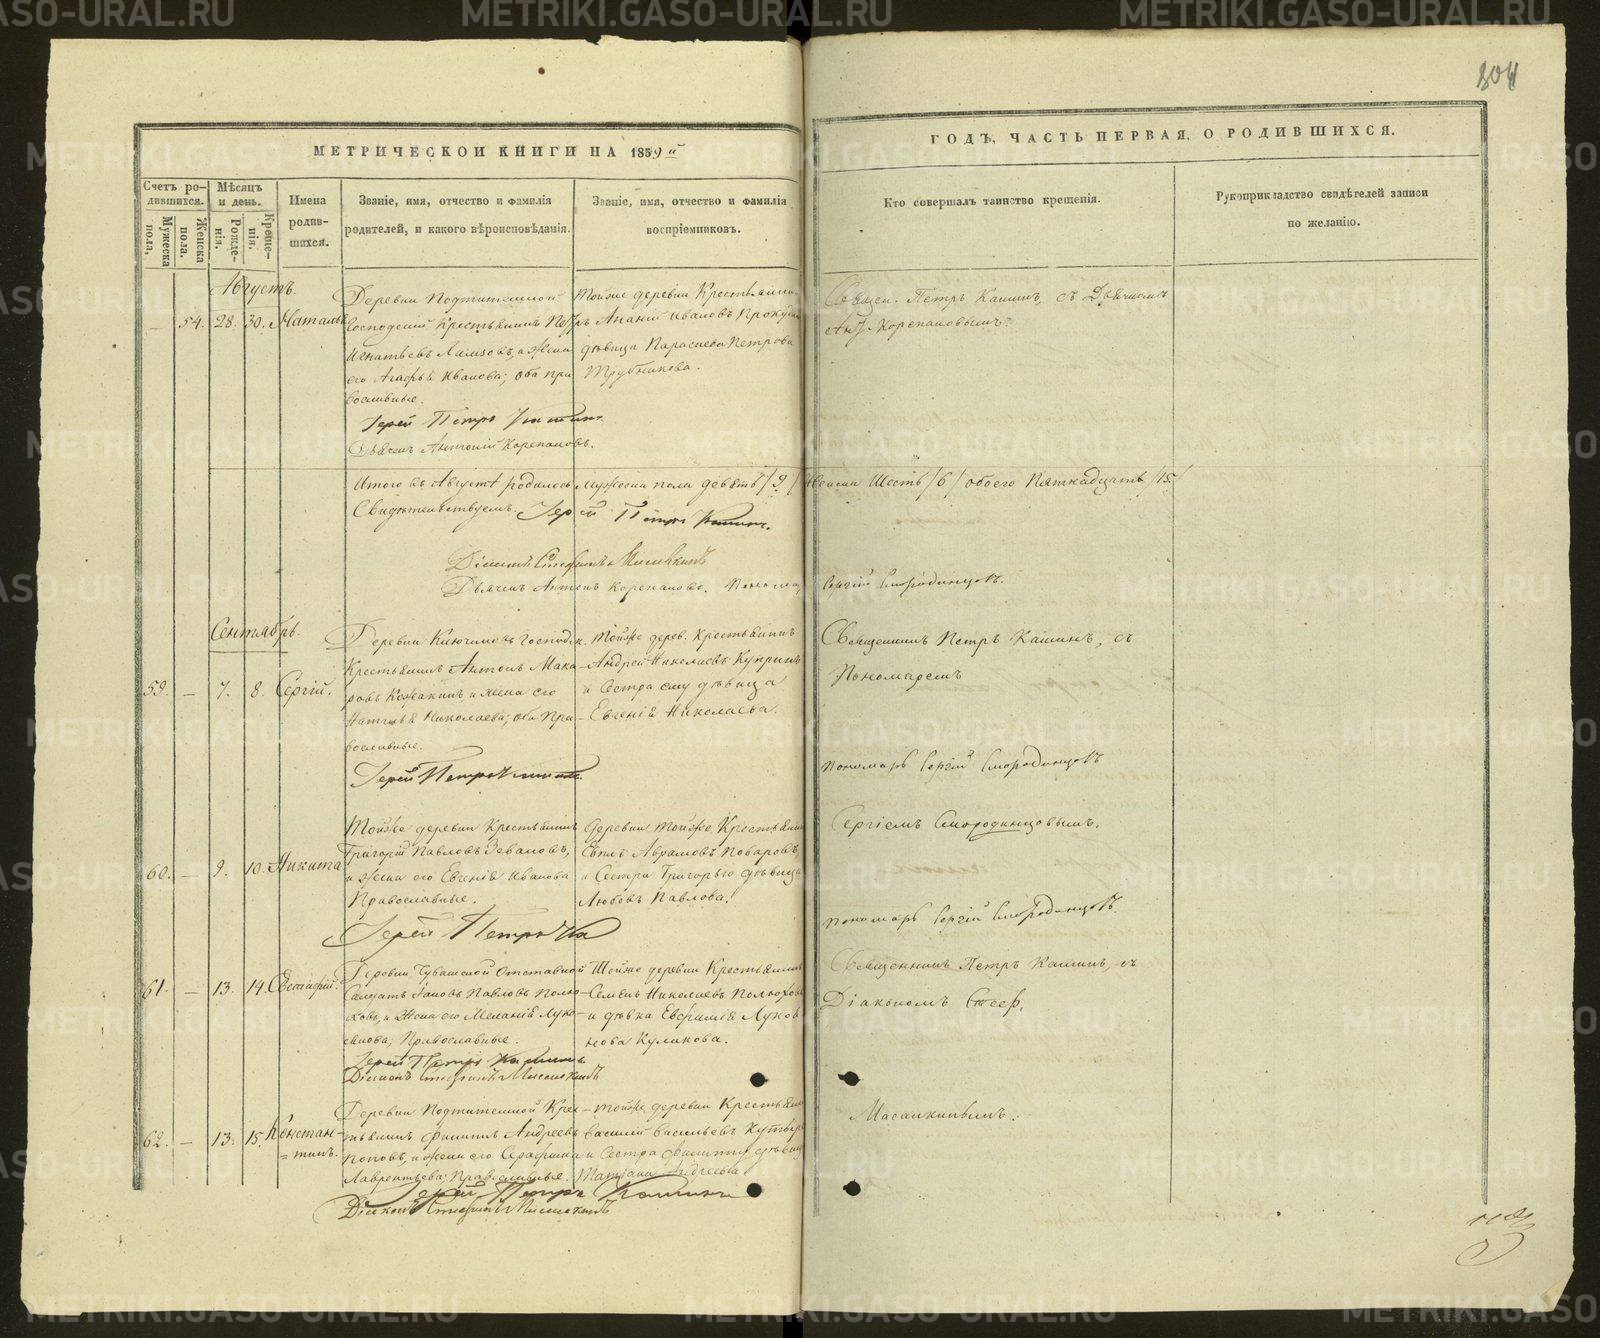 804
МЕТРИЧЕСКОЙ КНИГИ НА 1859 й
ГОДЪ, ЧАСТЬ ПЕРВАЯ, О РОДИВШИХСЯ.
Счетъ ро-
дившихся.
Мужеска
пола,
Женска
пола.
Мѣсяцъ
и день.
Рожде-
нія.
Креще-
нія.
Имена
родив-
шихся.
Званіе, имя, отчество и фамилія
родителей, и какого вѣроисповѣданія.
Званіе, имя, отчество и фамилія
воспріемниковъ.
Кто совершалъ таинство крещенія.
Рукоприкладство свидѣтелей записи
по желанію.
Августъ.
— 54. 28. 30. Наталья
Деревни
Господскій Крестьянинъ Петръ
Игнатьевъ а жена
его Агафья Иванова; оба пра
вославные.
Іерей Петръ Кашинъ
Дьячекъ Антоній Корепановъ.
Тойже деревни Крестьянинъ
Ананій Ивановъ
дѣвица Параскева Петрова
Трубникова.
Священ. Петръ Кашинъ, съ Дьячкомъ
Ант. Корепановымъ.
Итого въ Августѣ родилось мужеска пола девять /9/ женска Шесть /6/ обоего Пятнадцать /15/
Свидѣтельствуемъ. Іерей Петръ Кашинъ.
Діаконъ Стефанъ
Дьячекъ Антонъ Корепановъ. Пономарь
Сергій Смородинцовъ.
Сентябрь.
59. — 7. 8. Сергій.
Деревни Господск.
Крестьянинъ Антонъ Мака
ровъ и жена его
Наталья Николаева; оба Пра
вославные.
Іерей Петръ Кашинъ
Тойже дерев. Крестьянинъ
Андрей Николаевъ Купринъ
и Сестра ему дѣвица
Евгенія Николаева.
Священникъ Петръ Кашинъ, съ
Пономаремъ
пономарь Сергій Смородинцовъ
60. — 9. 10. Никита
Тойже деревни Крестьянинъ
Григорій Павловъ
и жена его Евгенія Иванова
Православные.
Іерей Петръ Ка
Деревни тойже Крестьянинъ
Аврамовъ Поваровъ,
и Сестра Григорью дѣвица
Любовь Павлова.
Сергіемъ Смородинцовымъ.
пономарь Сергій Смородинцовъ
61. — 13. 14.
Деревни Чувашской Отставной
Солдатъ Павловъ Полю
ховъ, и Жена его Меланія Луко
янова; Православные.
Іерей Петръ Кашинъ
Діаконъ Стефанъ
Тойже деревни Крестьянинъ
Семенъ Николаевъ Полюховъ
и дѣвка Евфимія Лукоя
нова Куликова.
Священникъ Петръ Кашинъ, съ
Діакономъ Стеф.
62. — 13. 15. Констан-
=тинъ.
Деревни Крес
тьянинъ Филиппъ Андреевъ
Поповъ, и жена его Серафима
Лаврентьева; Православные.
Іерей Петръ Кашинъ
Діаконъ Стефанъ
Тойже деревни Крестьянинъ
Василій Васильевъ
и Сестра Филиппу дѣвица
Татіана Андреева